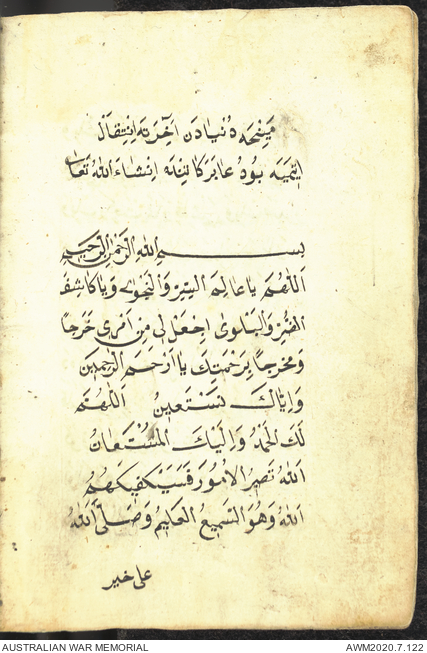 مينجه دنيادن آخرته انتقال
ايتميه بو دعا بركاتيله انشاء الله تعالى
بسم الله الرحمن الرحيم
اللهم يا عالم السر والنجوى ويا كاشف
الضر والبلوى اجعل لى من امرى فرجا
ومخرجا برحمتك يا ارحم الرحمين
واياك نستعين اللهم
لك الحمد واليك المستعان
الله تصير الامور فسيكفيكهم
الله وهو السميع العليم وصلى الله
على خير
AUSTRALIAN WAR MEMORIAL
AWM2020.7.122